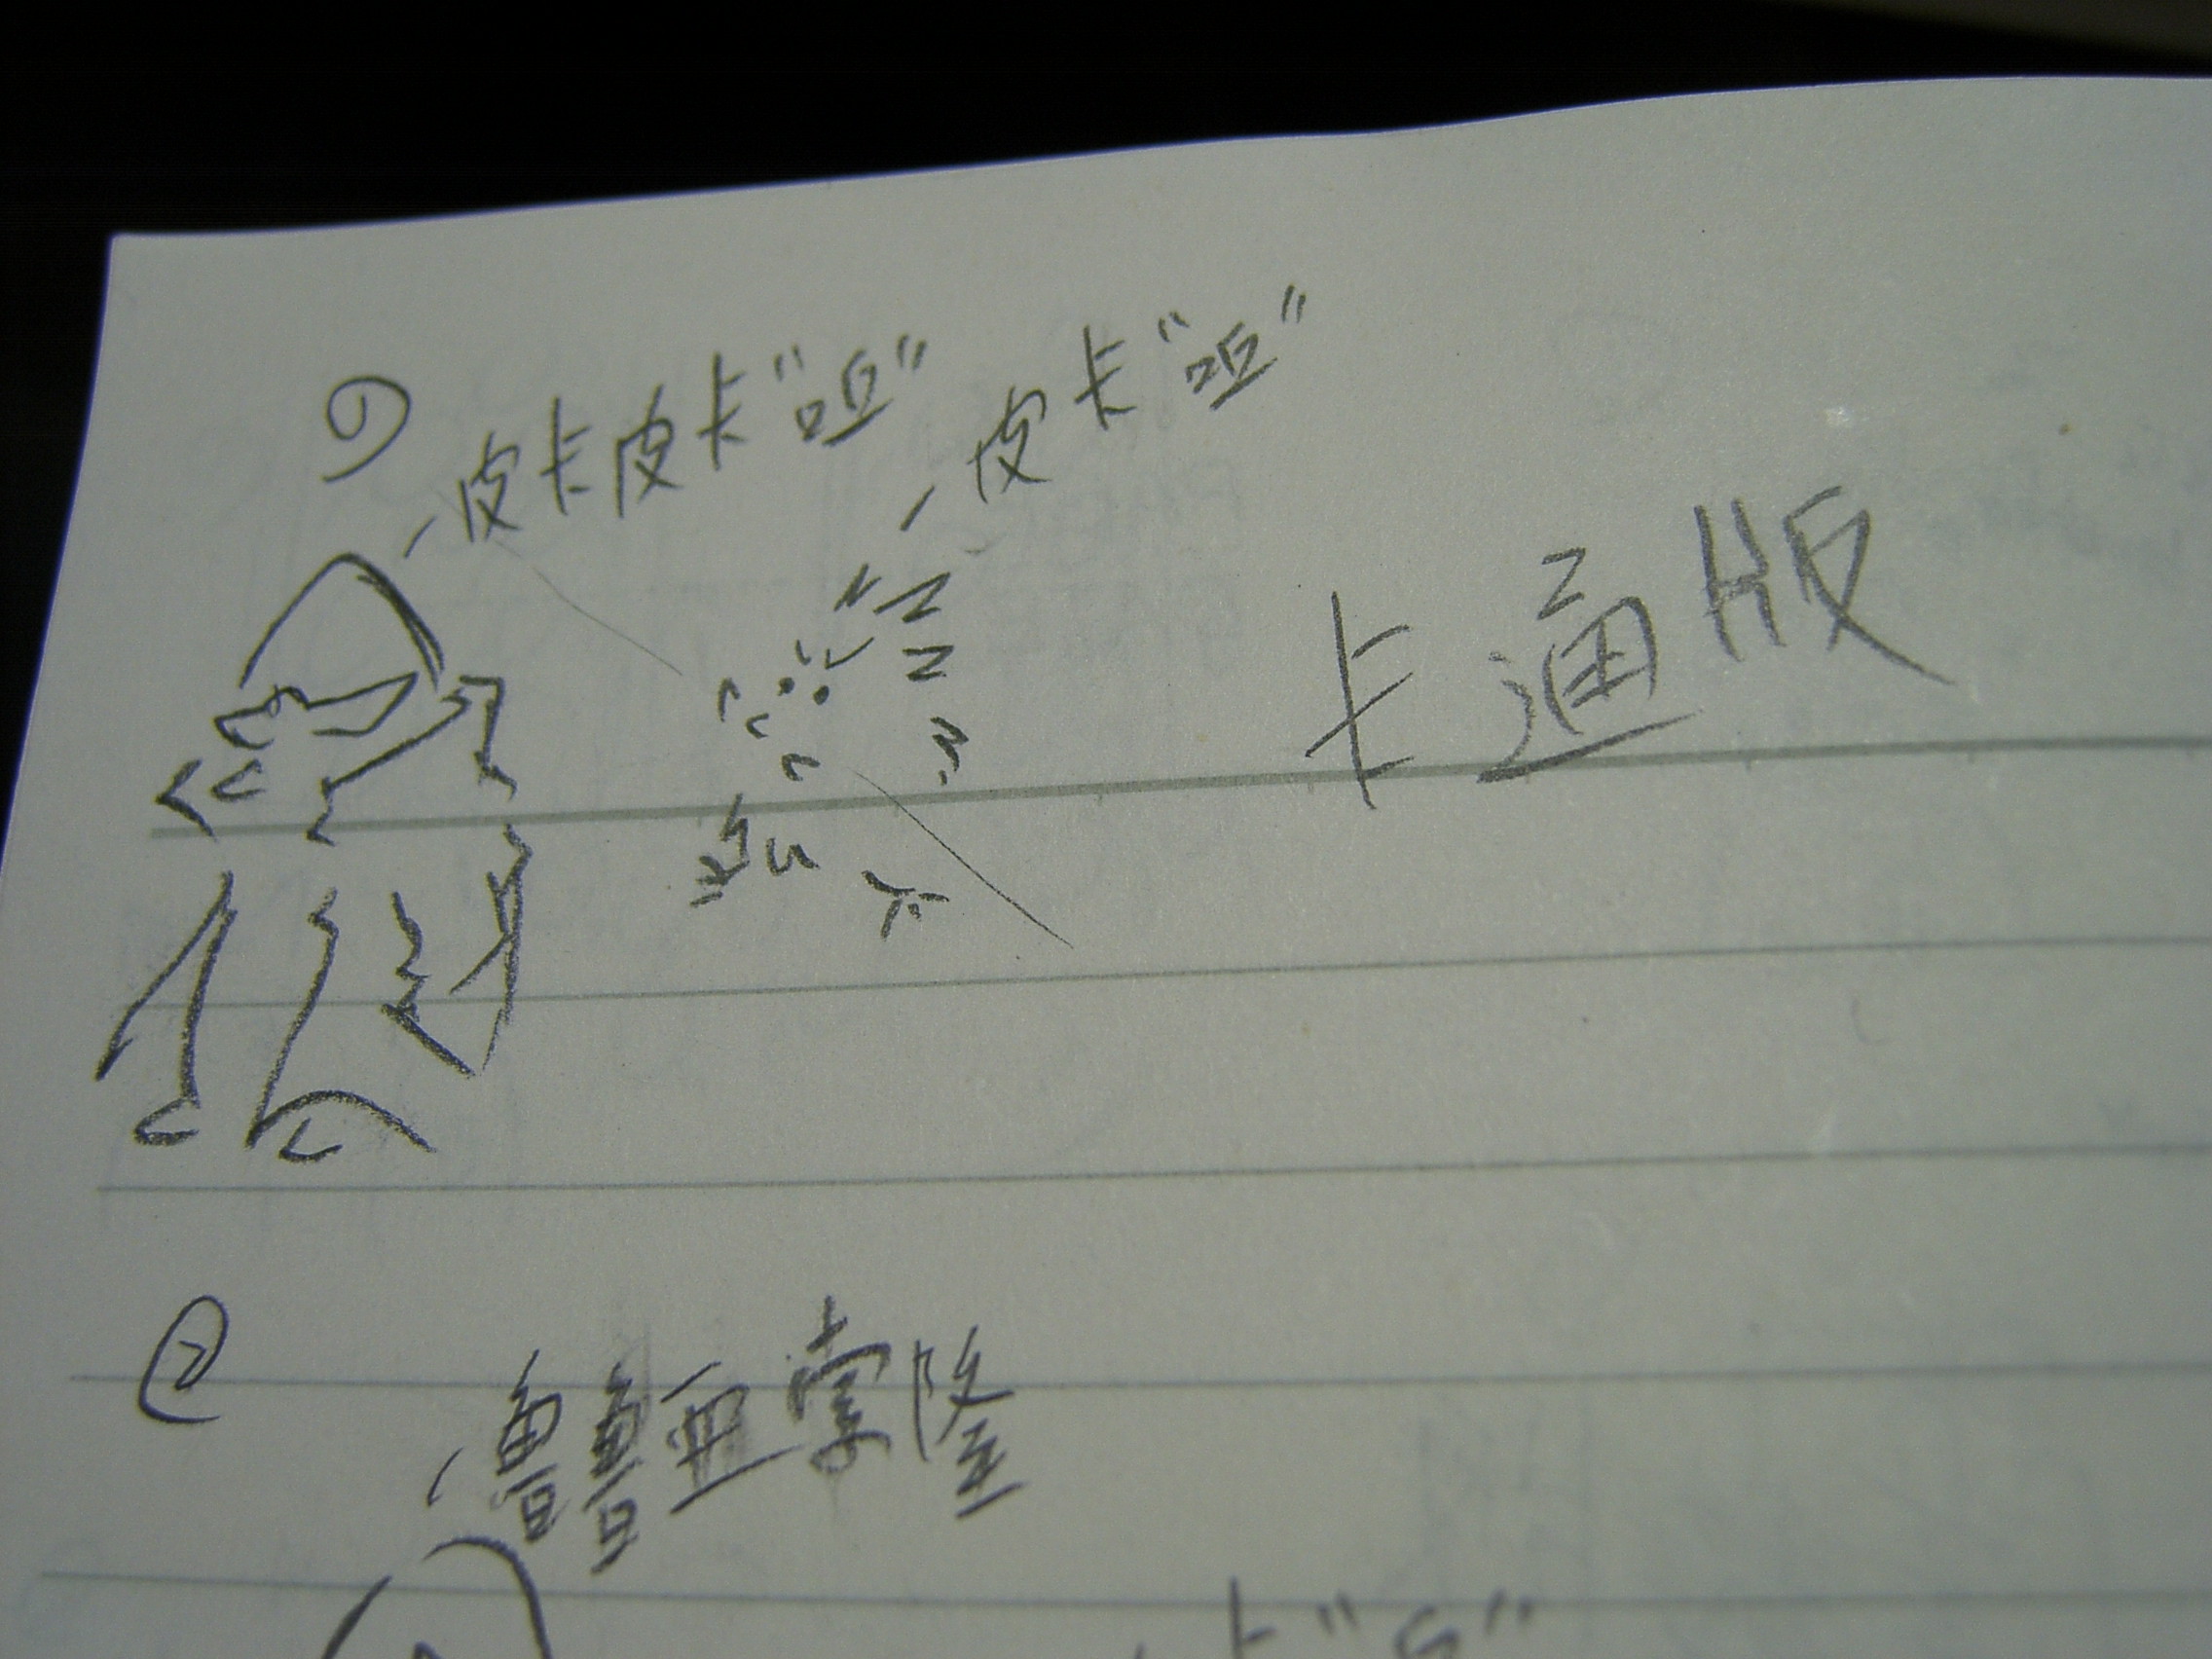 ①
皮卡皮卡"咀"
皮卡"咀"
卡通版
②
魯魯亞掌隆
卡"咀"